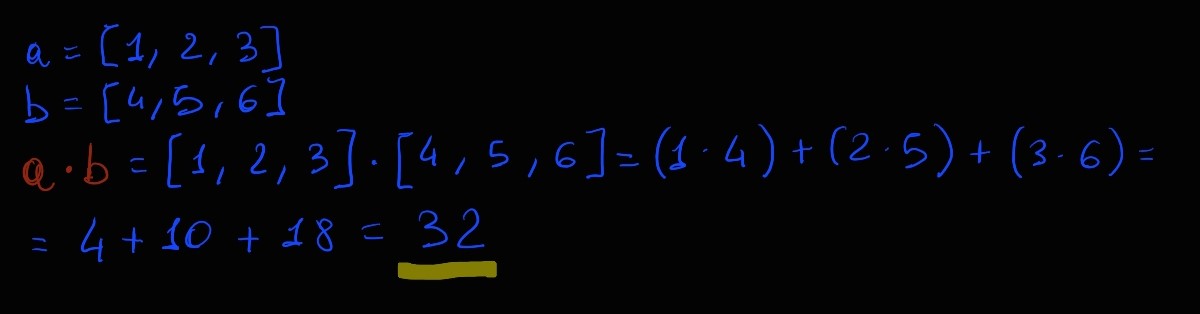 a = [1, 2, 3]
b = [4, 5, 6]
a · b = [1, 2, 3] · [4, 5, 6] = (1 · 4) + (2 · 5) + (3 · 6) =
= 4 + 10 + 18 = 32